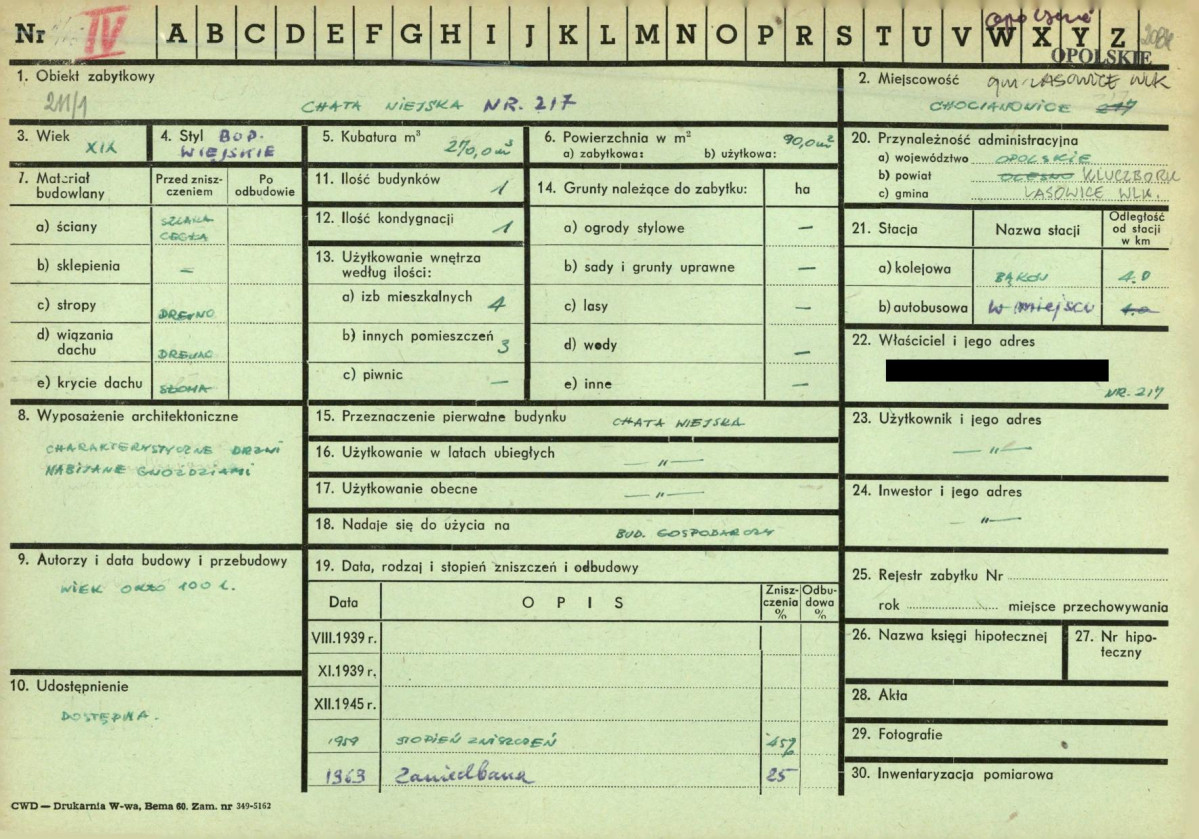 Nr IV A B C D E F G H I J K L M N O P R S T U V W X Y Z
opolskie
OPOLSKIE
1. Obiekt zabytkowy
211/1
CHATA WIEJSKA NR. 217
2. Miejscowość gm. LASOWICE WLK
CHOCIANOWICE 217
3. Wiek XIX
4. Styl BUD. WIEJSKIE
5. Kubatura m³ 270,0 m³
6. Powierzchnia w m² 90,0 m²
a) zabytkowa: b) użytkowa:
7. Materiał budowlany
Przed zniszczeniem
Po odbudowie
a) ściany SZLAKA CEGŁA
b) sklepienia –
c) stropy DREWNO
d) wiązania dachu DREWNO
e) krycie dachu SŁOMA
8. Wyposażenie architektoniczne
CHARAKTERYSTYCZNE DRZWI
NABIJANE GWOŹDZIAMI
9. Autorzy i data budowy i przebudowy
WIEK OKOŁO 100 L.
10. Udostępnienie
DOSTĘPNA.
11. Ilość budynków 1
12. Ilość kondygnacji 1
13. Użytkowanie wnętrza według ilości:
a) izb mieszkalnych 4
b) innych pomieszczeń 3
c) piwnic –
14. Grunty należące do zabytku: ha
a) ogrody stylowe –
b) sady i grunty uprawne –
c) lasy –
d) wody –
e) inne –
15. Przeznaczenie pierwotne budynku CHATA WIEJSKA
16. Użytkowanie w latach ubiegłych —„—
17. Użytkowanie obecne —„—
18. Nadaje się do użycia na BUD. GOSPODARCZY
19. Data, rodzaj i stopień zniszczeń i odbudowy
Data
OPIS
Zniszczenia %
Odbudowa %
VIII.1939 r.
XI.1939 r.
XII.1945 r.
1959 STOPIEŃ ZNISZCZEŃ 45%
1969 Zaniedbana 25
20. Przynależność administracyjna
a) województwo OPOLSKIE
b) powiat OLESNO KLUCZBORK
c) gmina LASOWICE WLK.
21. Stacja
Nazwa stacji
Odległość od stacji w km
a) kolejowa BĄKÓW 4.0
b) autobusowa w miejscu 4.0
22. Właściciel i jego adres
NR. 217
23. Użytkownik i jego adres
—„—
24. Inwestor i jego adres
—„—
25. Rejestr zabytku Nr
rok miejsce przechowywania
26. Nazwa księgi hipotecznej
27. Nr hipoteczny
28. Akta
29. Fotografie
30. Inwentaryzacja pomiarowa
CWD — Drukarnia W-wa, Bema 60. Zam. nr 349-5162